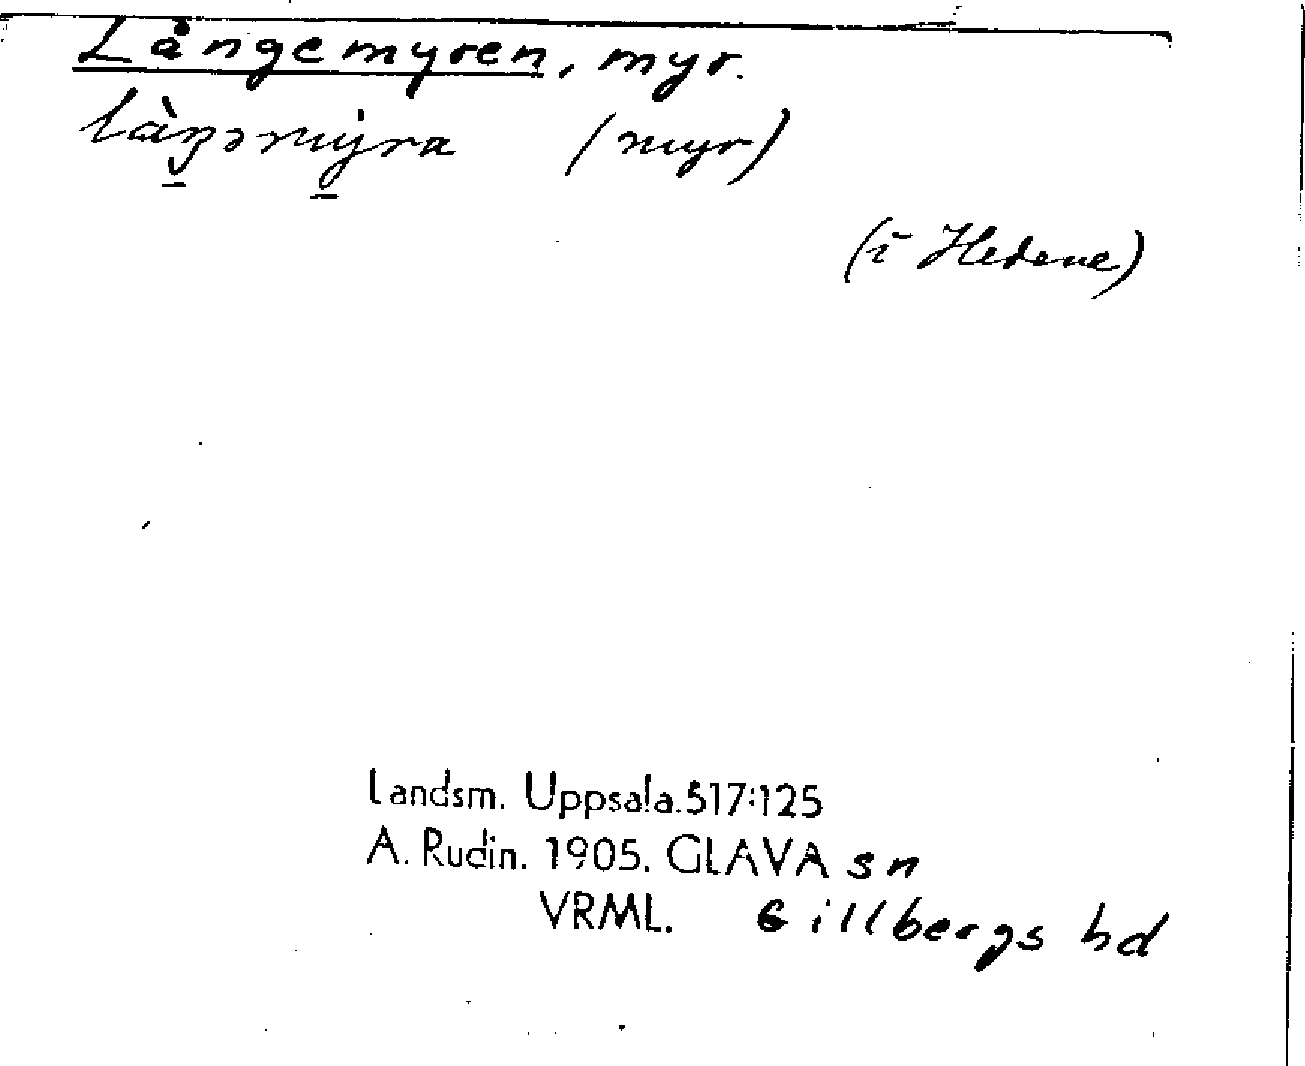 Långemyren, myr.
làŋəmýra (myr)
(i Hedene)
Landsm. Uppsala.517:125
A. Rudin. 1905. GLAVA sn
VRML. Gillbergs hd